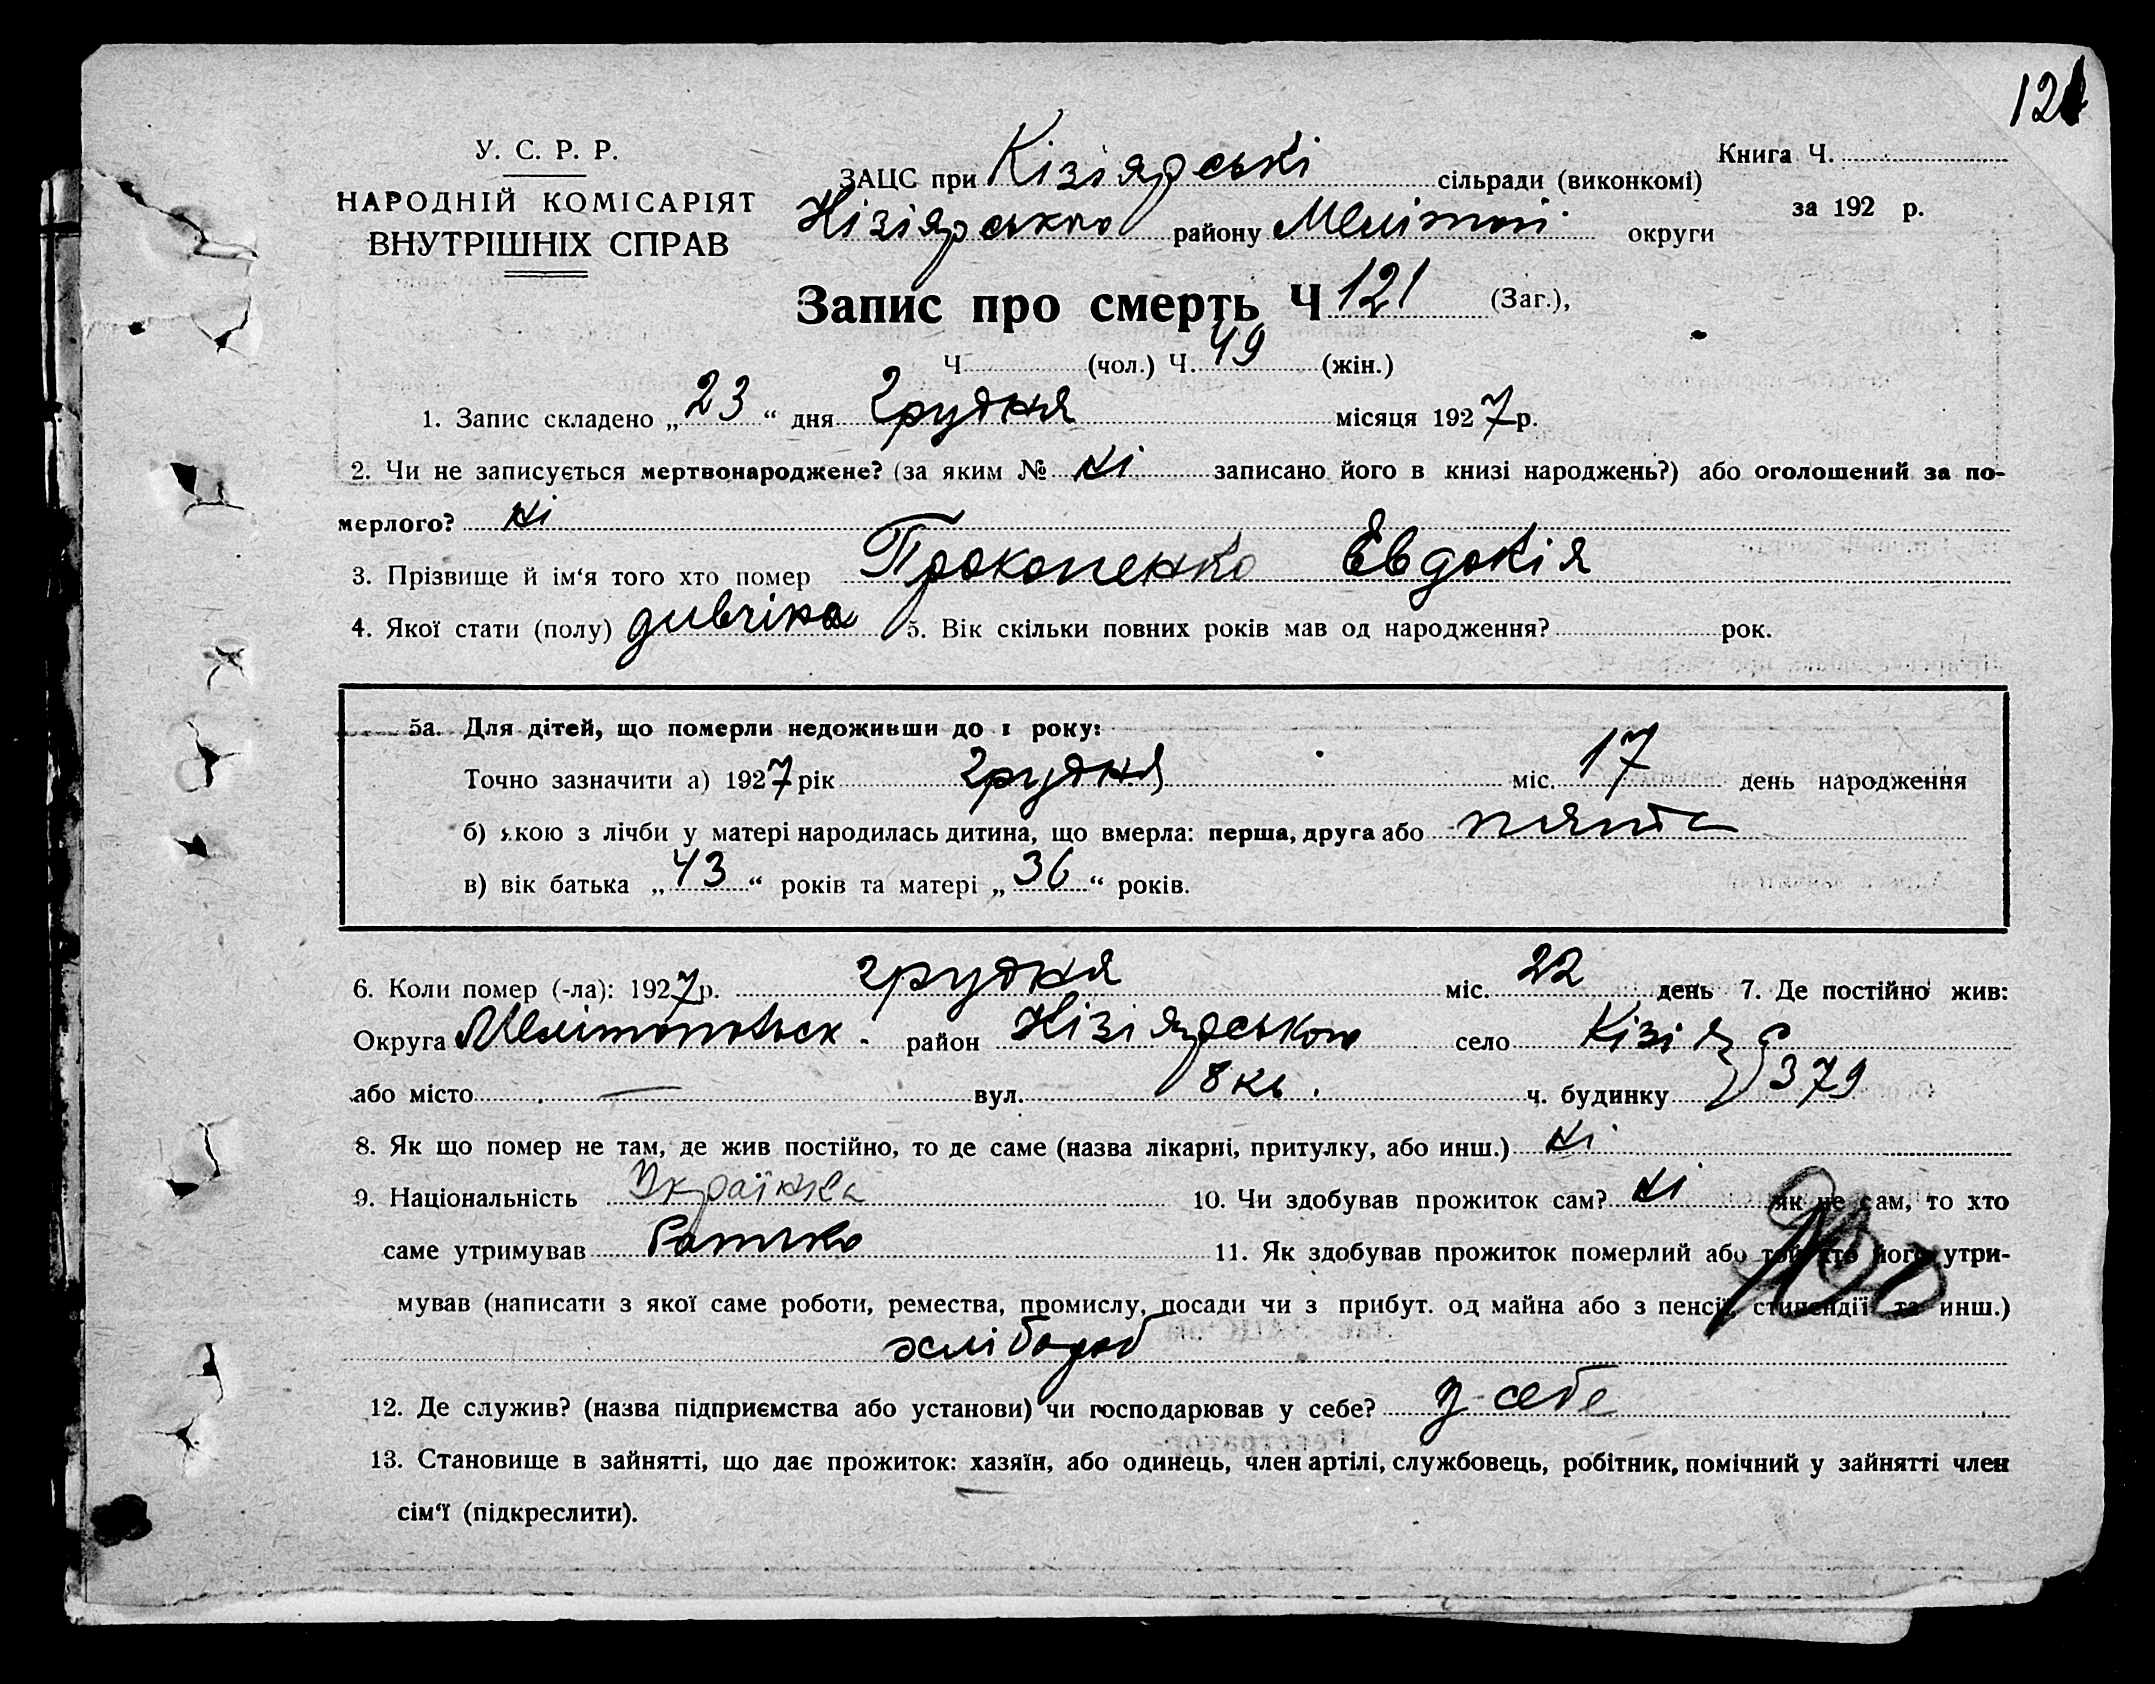 121
У. С. Р. Р.
НАРОДНІЙ КОМІСАРІЯТ
ВНУТРІШНІХ СПРАВ
ЗАЦС при Кізіярські сільради (виконкомі)
Кізіярського району Мелітоп. округи
Книга Ч.
за 192 р.
Запис про смерть Ч 121 (Заг.),
Ч (чол.) Ч. 49 (жін.)
1. Запис складено „ 23 “ дня Грудня місяця 1927 р.
2. Чи не записується мертвонароджене? (за яким № ні записано його в книзі народжень?) або оголошений за по-
мерлого? ні
3. Прізвище й ім‘я того хто помер Прокопенко Евдокія
4. Якої стати (полу) дивчіна 5. Вік скільки повних років мав од народження? рок.
5а. Для дітей, що померли недоживши до 1 року:
Точно зазначити а) 1927 рік грудня міс. 17 день народження
б) якою з лічби у матері народилась дитина, що вмерла: перша, друга або пята
в) вік батька „ 43 “ років та матері „ 36 “ років.
6. Коли помер (-ла): 1927 р. грудня міс. 22 день 7. Де постійно жив:
Округа Мелітопольск. район Кізіярського село Кізіяр
або місто — вул. 8 кв. ч. будинку 379
8. Як що помер не там, де жив постійно, то де саме (назва лікарні, притулку, або инш.) ні
9. Національність Українка 10. Чи здобував прожиток сам? ні як не сам, то хто
саме утримував Батько 11. Як здобував прожиток померлий або той хто його утри-
мував (написати з якої саме роботи, ремества, промислу, посади чи з прибут. од майна або з пенсії, стипендії та инш.)
хлібороб
12. Де служив? (назва підприємства або установи) чи господарював у себе? у себе
13. Становище в зайнятті, що дає прожиток: хазяїн, або одинець, член артілі, службовець, робітник, помічний у зайнятті член
сім‘ї (підкреслити).